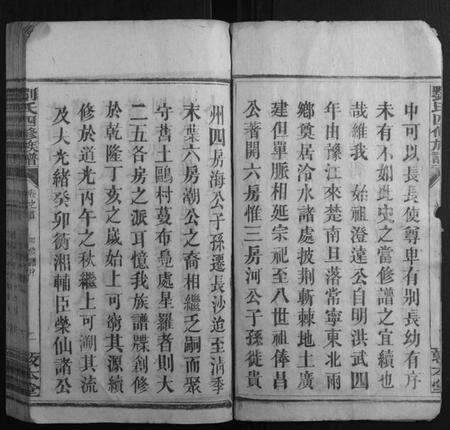 中可以長長使尊卑有別長幼有序
未有不如此宗之當修譜之宜續也
哉維我　始祖澄遠公自明洪武四
年由豫江來楚南旦落常寧東北兩
鄉奠居冷水諸處披荆斬棘地土廣
建但單脈相延宗祀至八世祖俸昌
公著開六房惟三房河公子孫徙貴
州四房海公子孫遷長沙迨至淸季
末葉六房潮公之裔相繼乏嗣而聚
守舊土鷗村蔓布星處星羅者則大
二五各房之派耳憶我族譜牒創修
於乾隆丁亥之歲始上可窮其源續
修於道光丙午之秋繼上可溯其流
及夫光緖癸卯衡湘輔臣榮仙諸公
劉氏四修族譜